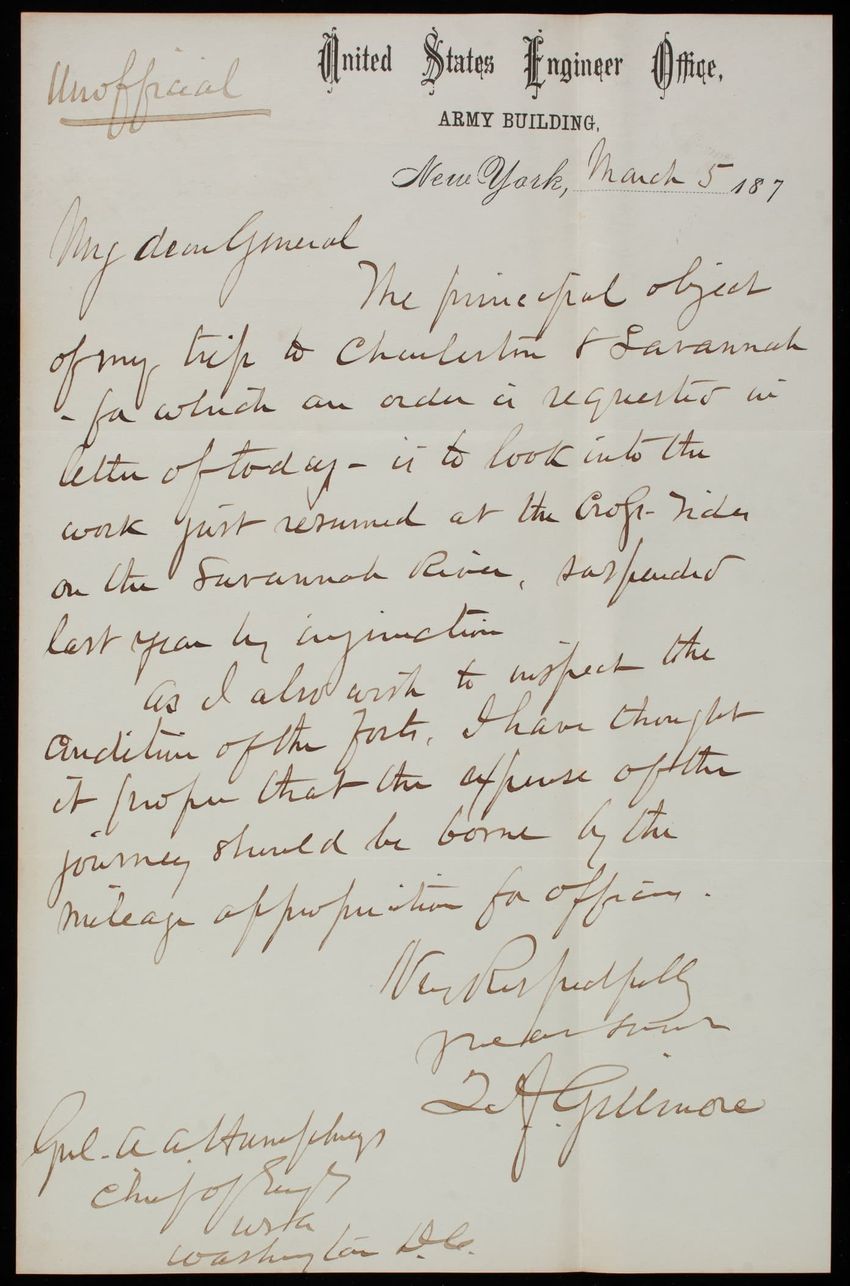 Unofficial
United States Engineer Office,
ARMY BUILDING,
New York, March 5 187
My dear General
The principal object
of my trip to Charleston & Savannah
- for which an order is requested in
letter of today - is to look into the
work just resumed at the Cross-Tides
on the Savannah River, suspended
last year by injunction
As I also wish to inspect the
condition of the forts, I have thought
it proper that the expense of the
journey should be borne by the
mileage appropriation for officers.
Very Respectfully
Q A Gillmore
Genl. A A Humphreys
Chief of Engrs
USA
Washington D.C.